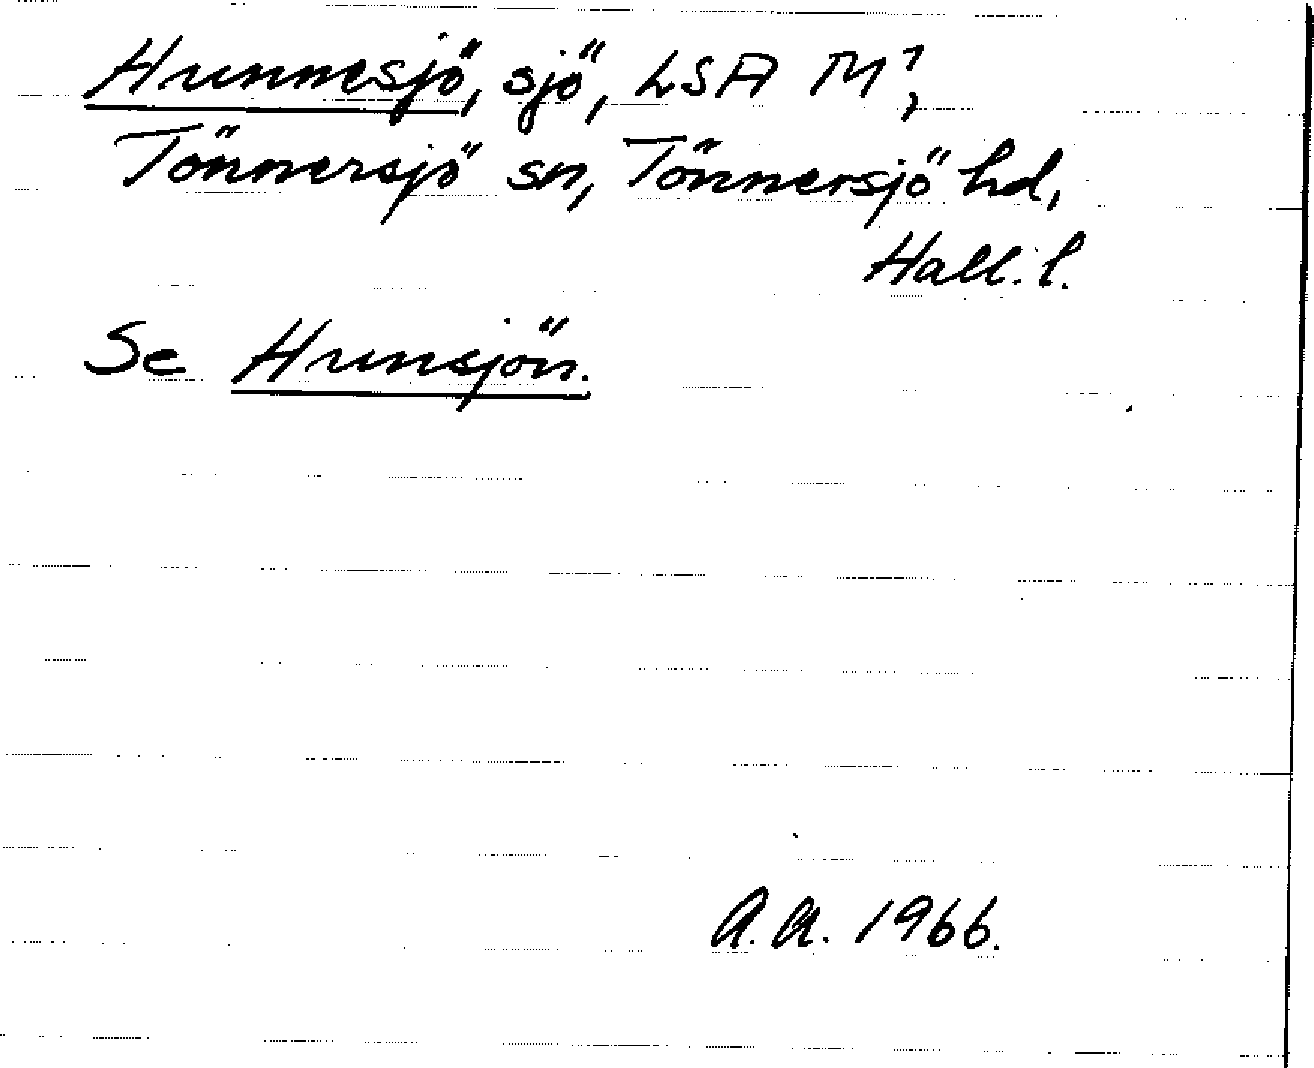 Hunnesjö, sjö, LSA M¹,
Tönnersjö sn, Tönnersjö hd,
Hall. l.
Se Hunsjön.
A.A. 1966.